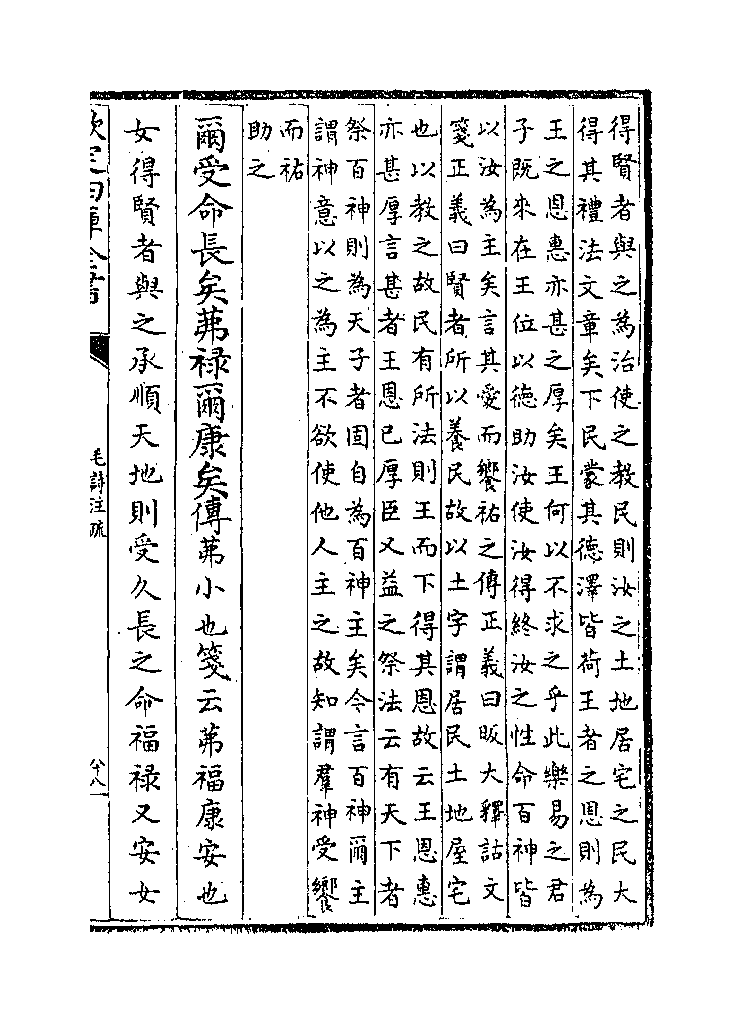 得賢者與之為治使之教民則汝之土地居宅之民大
得其禮法文章矣下民蒙其德澤皆荷王者之恩則為
王之恩惠亦甚之厚矣王何以不求之乎此樂易之君
子既來在王位以德助汝使汝得終汝之性命百神皆
以汝為主矣言其愛而饗祐之傳正義曰昄大釋詁文
箋正義曰賢者所以養民故以土字謂居民土地屋宅
也以教之故民有所法則王而下得其恩故云王恩惠
亦甚厚言甚者王恩已厚臣又益之祭法云有天下者
祭百神則為天子者固自為百神主矣今言百神爾主
謂神意以之為主不欲使他人主之故知謂羣神受饗
而祐
助之
爾受命長矣茀禄爾康矣傳茀小也箋云茀福康安也
女得賢者與之承順天地則受久長之命福禄又安女
欽定四庫全書
毛詩注疏
八十八